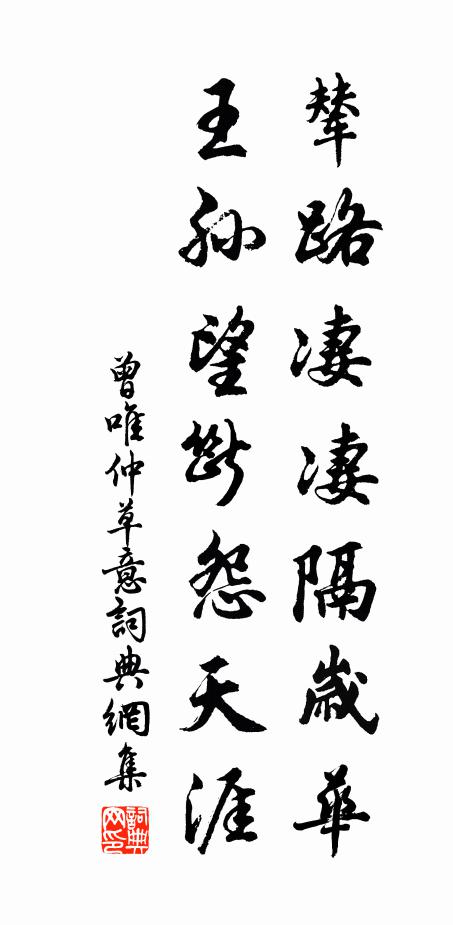 輦路凄凄隔歲華
王孫望斷怨天涯
曾唯仲草意詞典網集
詞典網印